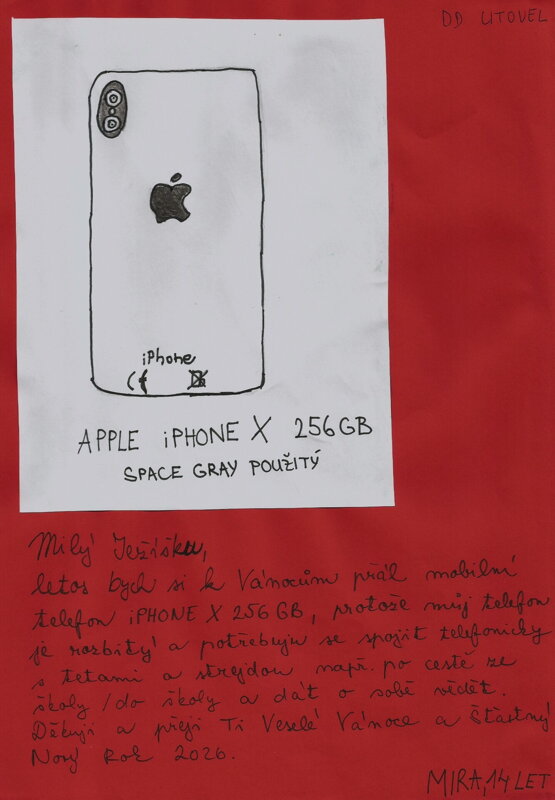 DD LITOVEL
iPhone
CE
APPLE iPHONE X 256GB
SPACE GRAY POUŽITÝ
Milý Ježíšku,
letos bych si k Vánocům přál mobilní
telefon iPHONE X 256 GB, protože můj telefon
je rozbitý a potřebuju se spojit telefonicky
s tetami a strejdou např. po cestě ze
školy / do školy a dát o sobě vědět.
Děkuji a přeji Ti Veselé Vánoce a Šťastný
Nový Rok 2026.
MIRA, 14 LET